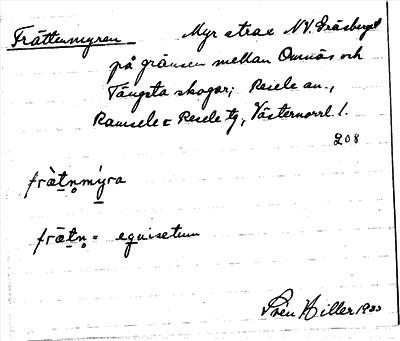 Frättenmyren Myr strax NV. Gråsberget
på gränsen mellan Omnäs och
Tängsta skogar; Resele sn.,
Ramsele & Resele tg, Västernorrl. l.
208
frætn̥mýra
frætn̥ = equisetum
Sven Hiller 1933